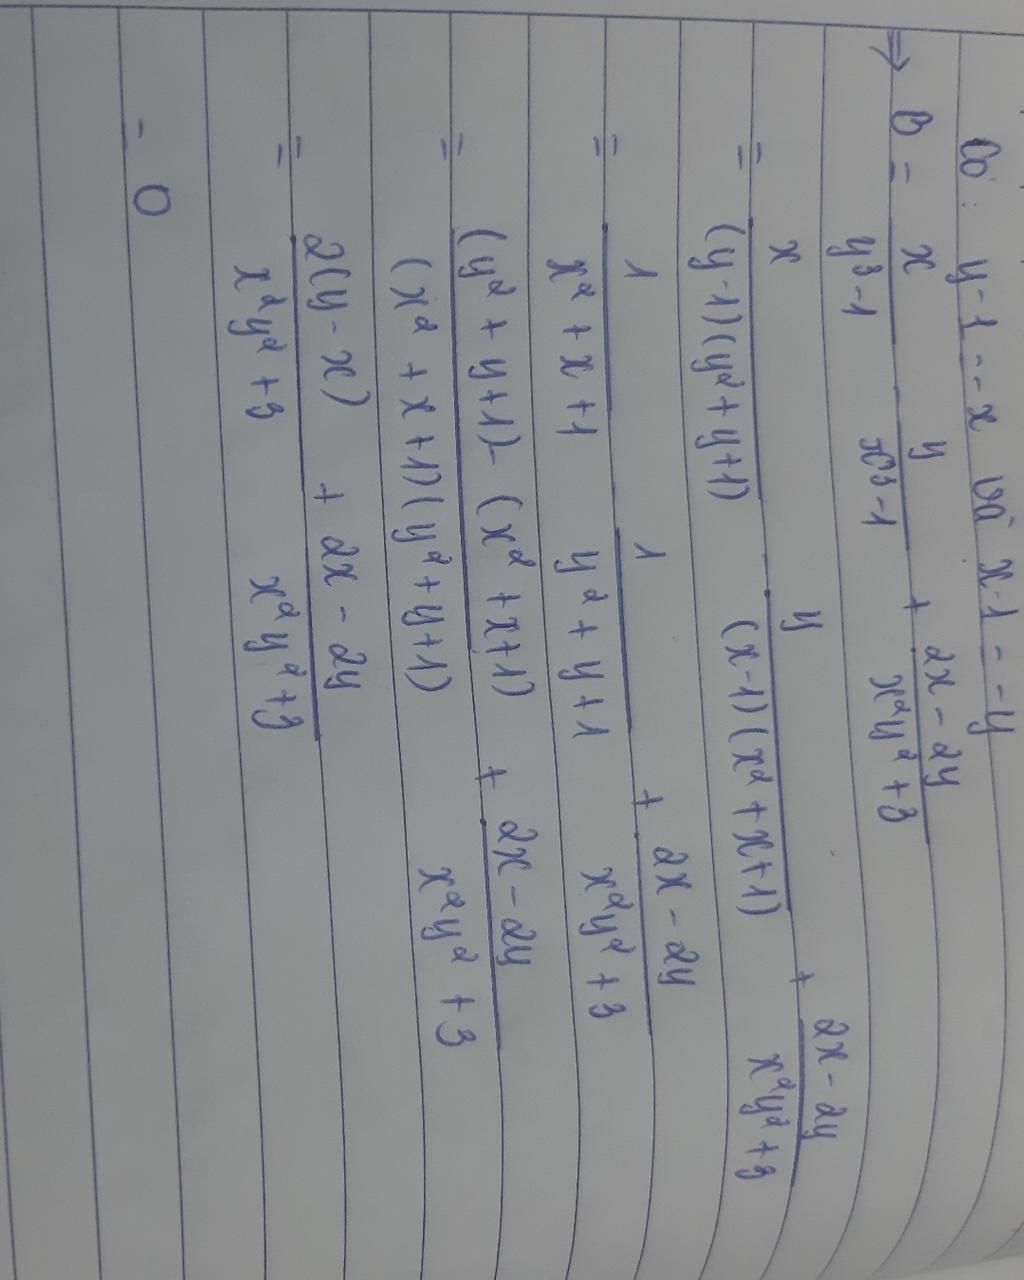 Có: y-1 = -x và x-1 = -y
⇒ B = x/(y³-1) y/(x³-1) + (2x-2y)/(x²y²+3)
= x/((y-1)(y²+y+1)) y/((x-1)(x²+x+1)) + (2x-2y)/(x²y²+3)
= 1/(x²+x+1) 1/(y²+y+1) + (2x-2y)/(x²y²+3)
= ((y²+y+1)-(x²+x+1))/((x²+x+1)(y²+y+1)) + (2x-2y)/(x²y²+3)
= 2(y-x)/(x²y²+3) + (2x-2y)/(x²y²+3)
= 0